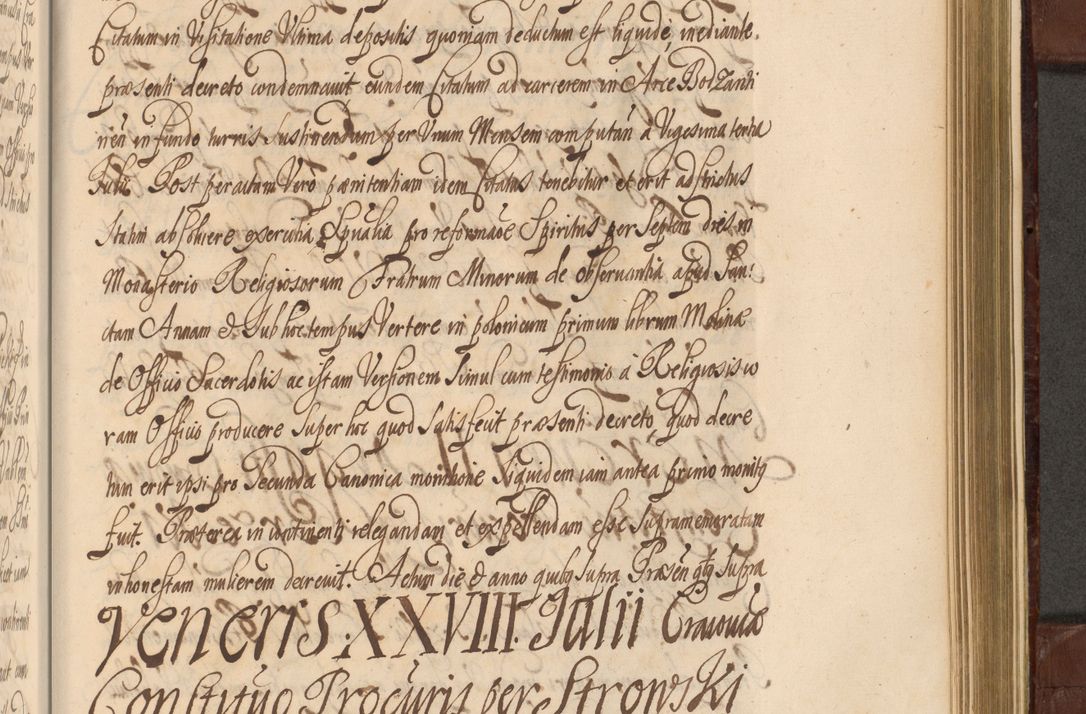 Citatum in Visitatione Ultima depositis quoniam deductum est liquide, mediante
præsenti decreto condemnavit eundem Citatum ad carcerem in Arce Bodzanti
nen in fundo turris sustinendum per Unum Mensem computan a Vigesima tertia
Julii Post peractam Verò pænitentiam idem Citatus tenebitur et erit adstrictus
statim absolvere exercitia Spualia pro reformaõe Spiritus per Septem dies in
Monasterio Religiosorum Fratrum Minorum de observantia apud San:
ctam Annam & Sub hoc tempus Vertere in polonicum primum librum Molinæ
de Officio Sacerdotis ac istam Versionem simul cum testimonio a Religiosis co
ram Officio producere super hoc quod satisfecit præsenti decreto, quod decre
tum erit ipsi pro Secunda Canonica monitione siquidem iam antea primo monitq
fuit. Præterea in continenti relegandam et expellendam esse supramemoratam
inhonestam mulierem decrevit. Actum die & anno quibq supra Præsen qbq supra
Veneris XXVIII Julii Cracoviæ
Constitũo Procũris per Strowski